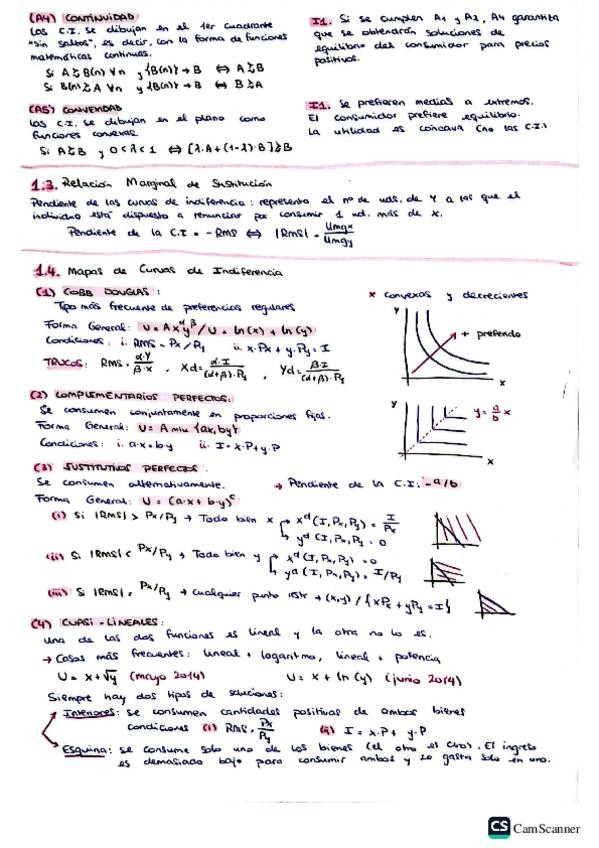 (A4) CONTINUIDAD
Las C.I. se dibujan en el 1er cuadrante
"sin saltos", es decir, con la forma de funciones
matemáticas continuas.
Si A ≿ B(n) ∀n y {B(n)} → B ⇔ A ≿ B
Si B(n) ≿ A ∀n y {B(n)} → B ⇔ B ≿ A
I1. Si se cumplen A1 y A2, A4 garantiza
que se obtendrán soluciones de
equilibrio del consumidor para precios
positivos.
(A5) CONVEXIDAD
Las C.I. se dibujan en el plano como
funciones convexas.
Si A ≿ B y 0 < λ < 1 ⇔ [λ.A + (1-λ).B] ≿ B
I1. Se prefieren medias a extremos.
El consumidor prefiere equilibrio.
La utilidad es cóncava (no las C.I.)
1.3. Relación Marginal de Sustitución
Pendiente de las curvas de indiferencia: representa el nº de uds. de Y a las que el
individuo está dispuesto a renunciar por consumir 1 ud. más de x.
Pendiente de la C.I = -RMS ⇔ |RMS| = Umgx / Umgy
1.4. Mapas de Curvas de Indiferencia
(1) COBB DOUGLAS:
Tipo más frecuente de preferencias regulares
Forma General: U = A x^α y^β / U = ln(x) + ln(y)
Condiciones: i. RMS = Px / Py ii. x.Px + y.Py = I
TRUCOS: RMS = α.Y / β.X , Xd = α.I / (α+β).Px , Yd = β.I / (α+β).Py
* convexas y decrecientes
Y
+ preferido
x
(2) COMPLEMENTARIOS PERFECTOS:
Se consumen conjuntamente en proporciones fijas.
Forma General: U = A min {ax, by}
Condiciones: i. a.x = b.y ii. I = x.P + y.P
Y
y = a/b x
x
(3) SUSTITUTIVOS PERFECTOS:
Se consumen alternativamente. → Pendiente de la C.I: -a/b
Forma General: U = (a.x + b.y)^c
(i) Si |RMS| > Px/Py → Todo bien x
x^d (I, Px, Py) = I / Px
y^d (I, Px, Py) = 0
(ii) Si |RMS| < Px/Py → Todo bien y
x^d (I, Px, Py) = 0
y^d (I, Px, Py) = I/Py
(iii) Si |RMS| = Px/Py → cualquier punto restr → (x,y) / {xPx + yPy = I}
(4) CUASI-LINEALES:
Una de las dos funciones es lineal y la otra no lo es.
→ Casos más frecuentes: lineal + logaritmo, lineal + potencia
U = x + √y (mayo 2014) U = x + ln(y) (junio 2014)
Siempre hay dos tipos de soluciones:
Interiores: se consumen cantidades positivas de ambos bienes
condiciones (i) RMS = Px / Py (ii) I = x.P + y.P
Esquina: se consume solo uno de los bienes (el otro es cero). El ingreso
es demasiado bajo para consumir ambos y lo gasta solo en uno.
CS CamScanner